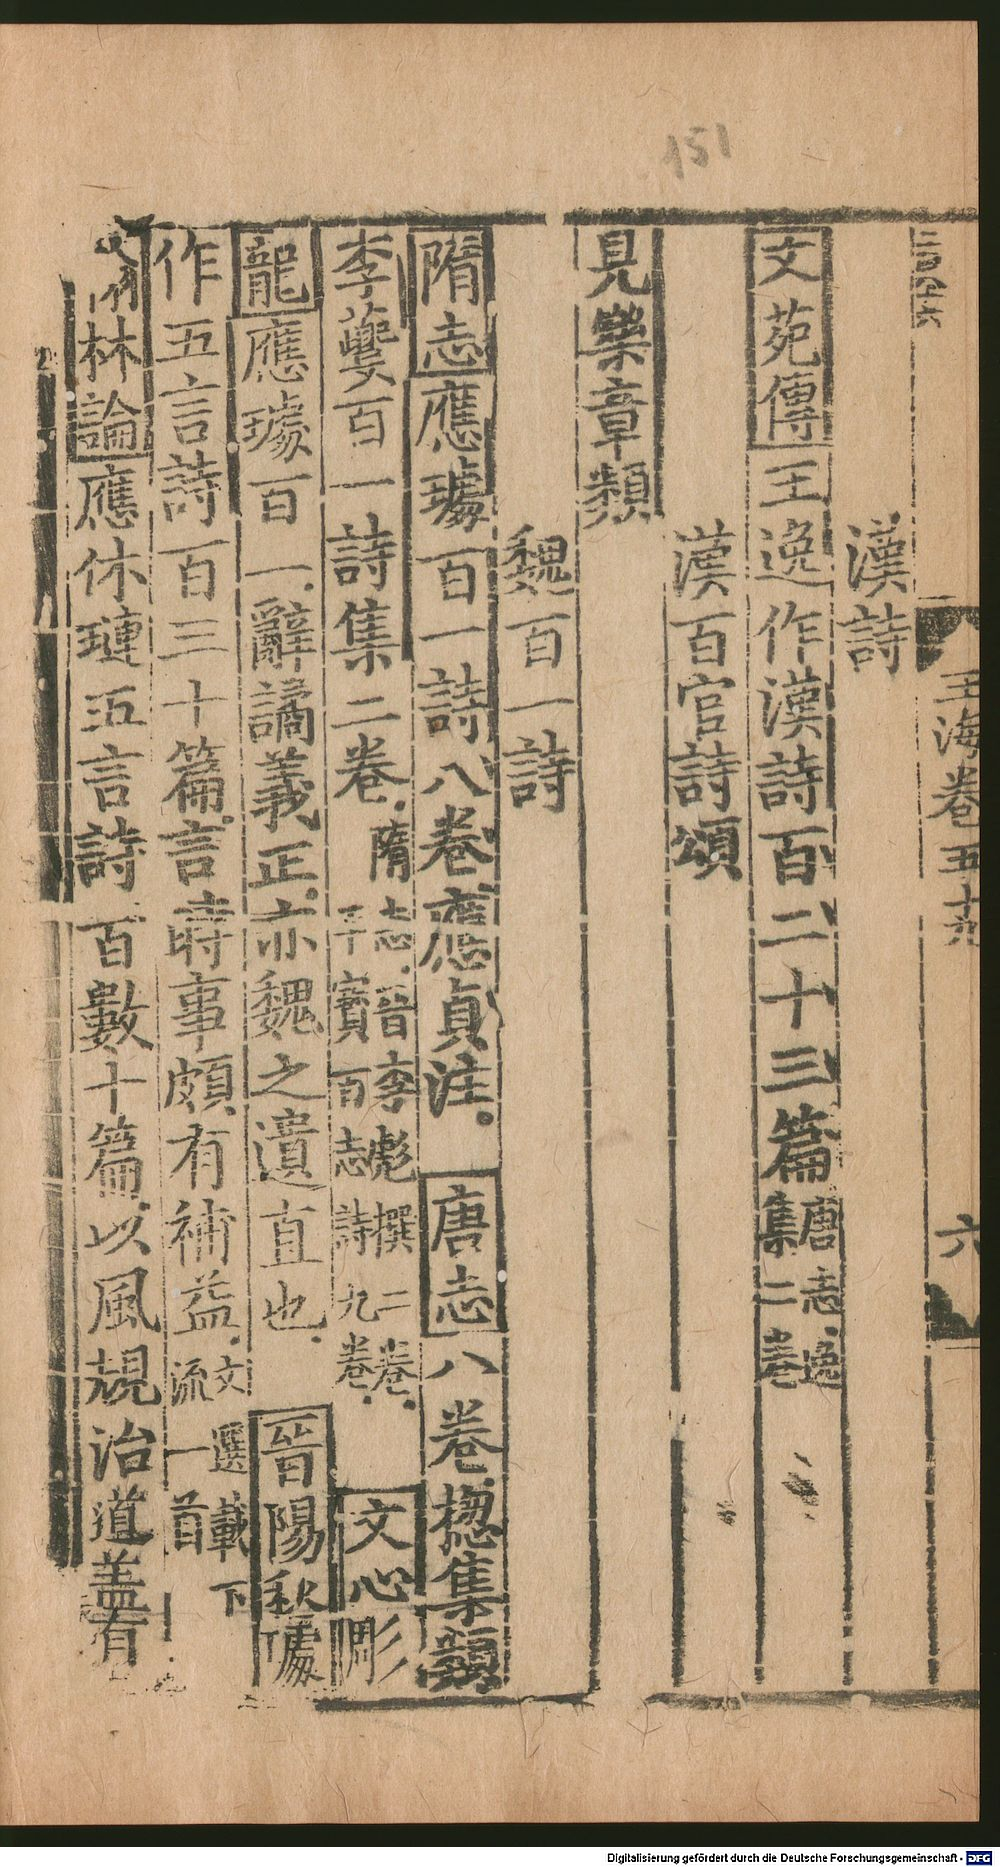 151
二百四六
玉海卷五十九
六
漢詩
文苑傳王逸作漢詩百二十三篇唐志逸集二卷
漢百官詩頌
見樂章類
魏百一詩
隋志應璩百一詩八卷應貞注。唐志八卷揔集類
李夔百一詩集二卷隋志晉李彪撰二卷干寶百志詩九卷文心彫
龍應璩百一辭譎義正亦魏之遺直也晉陽秋璩
作五言詩百三十篇言時事頗有補益文選載下流一首
林論應休璉五言詩百數十篇以風規治道蓋有
Digitalisierung gefördert durch die Deutsche Forschungsgemeinschaft - DFG